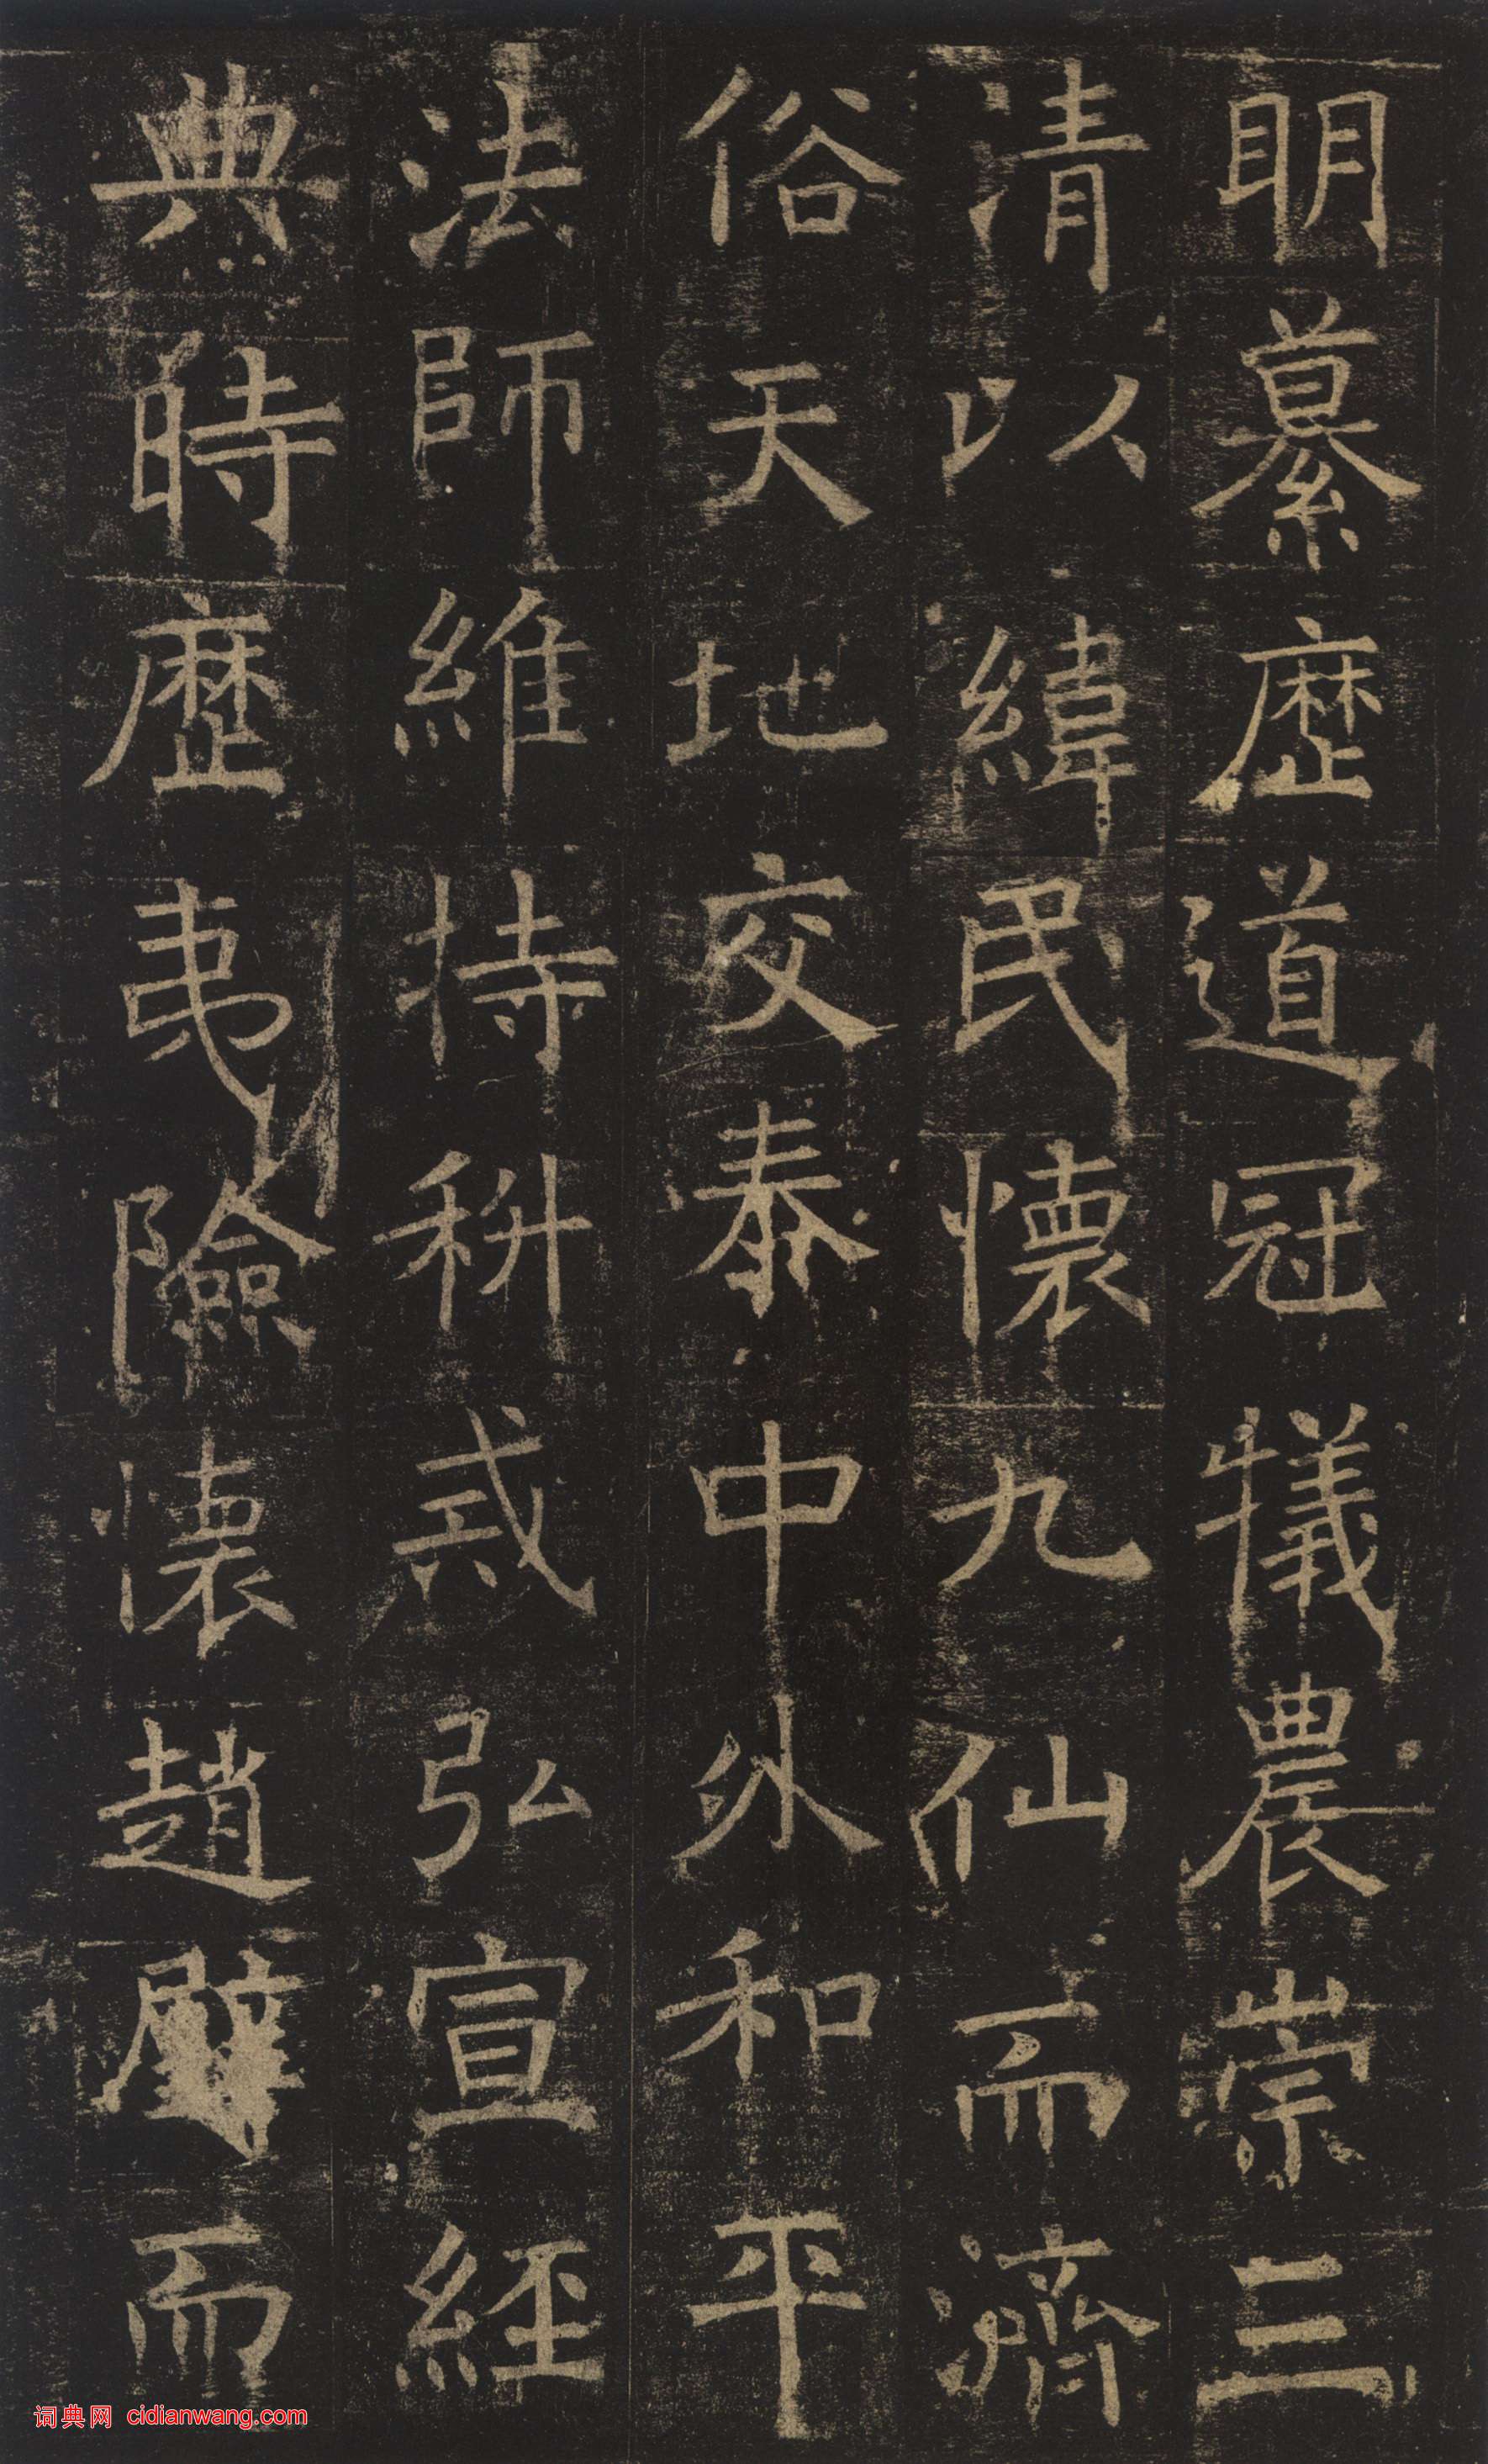 明纂歷道冠犧農崇三
清以緯民懷九仙而濟
俗天地交泰中外和平
法師維持科戒弘宣經
典時歷夷險懷趙璧而
词典网 cidianwang.com